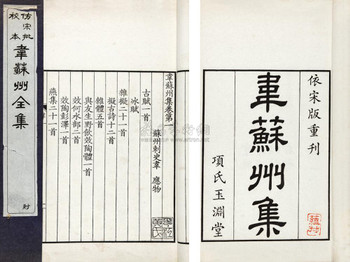 仿宋批
校本
韋蘇州全集
韋蘇州集卷第一
蘇州刺史韋 應物
古賦一首
冰賦
雜擬二十一首
擬古詩十二首
雜體五首
與友生野飲效陶體一首
效何水部二首
效陶彭澤一首
燕集二十一首
依宋版重刊
韋蘇州集
項氏玉淵堂